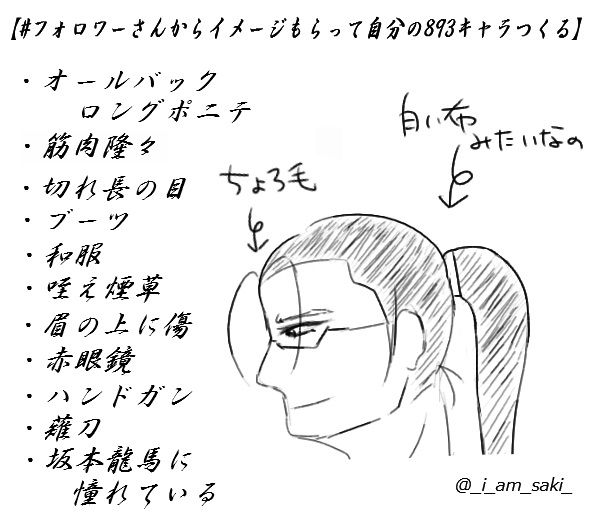 【#フォロワーさんからイメージもらって自分の893キャラつくる】
・オールバック
ロングポニテ
・筋肉隆々
・切れ長の目
・ブーツ
・和服
・咥え煙草
・眉の上に傷
・赤眼鏡
・ハンドガン
・薙刀
・坂本龍馬に
憧れている
ちょろ毛
白い布
みたいなの
@_i_am_saki_